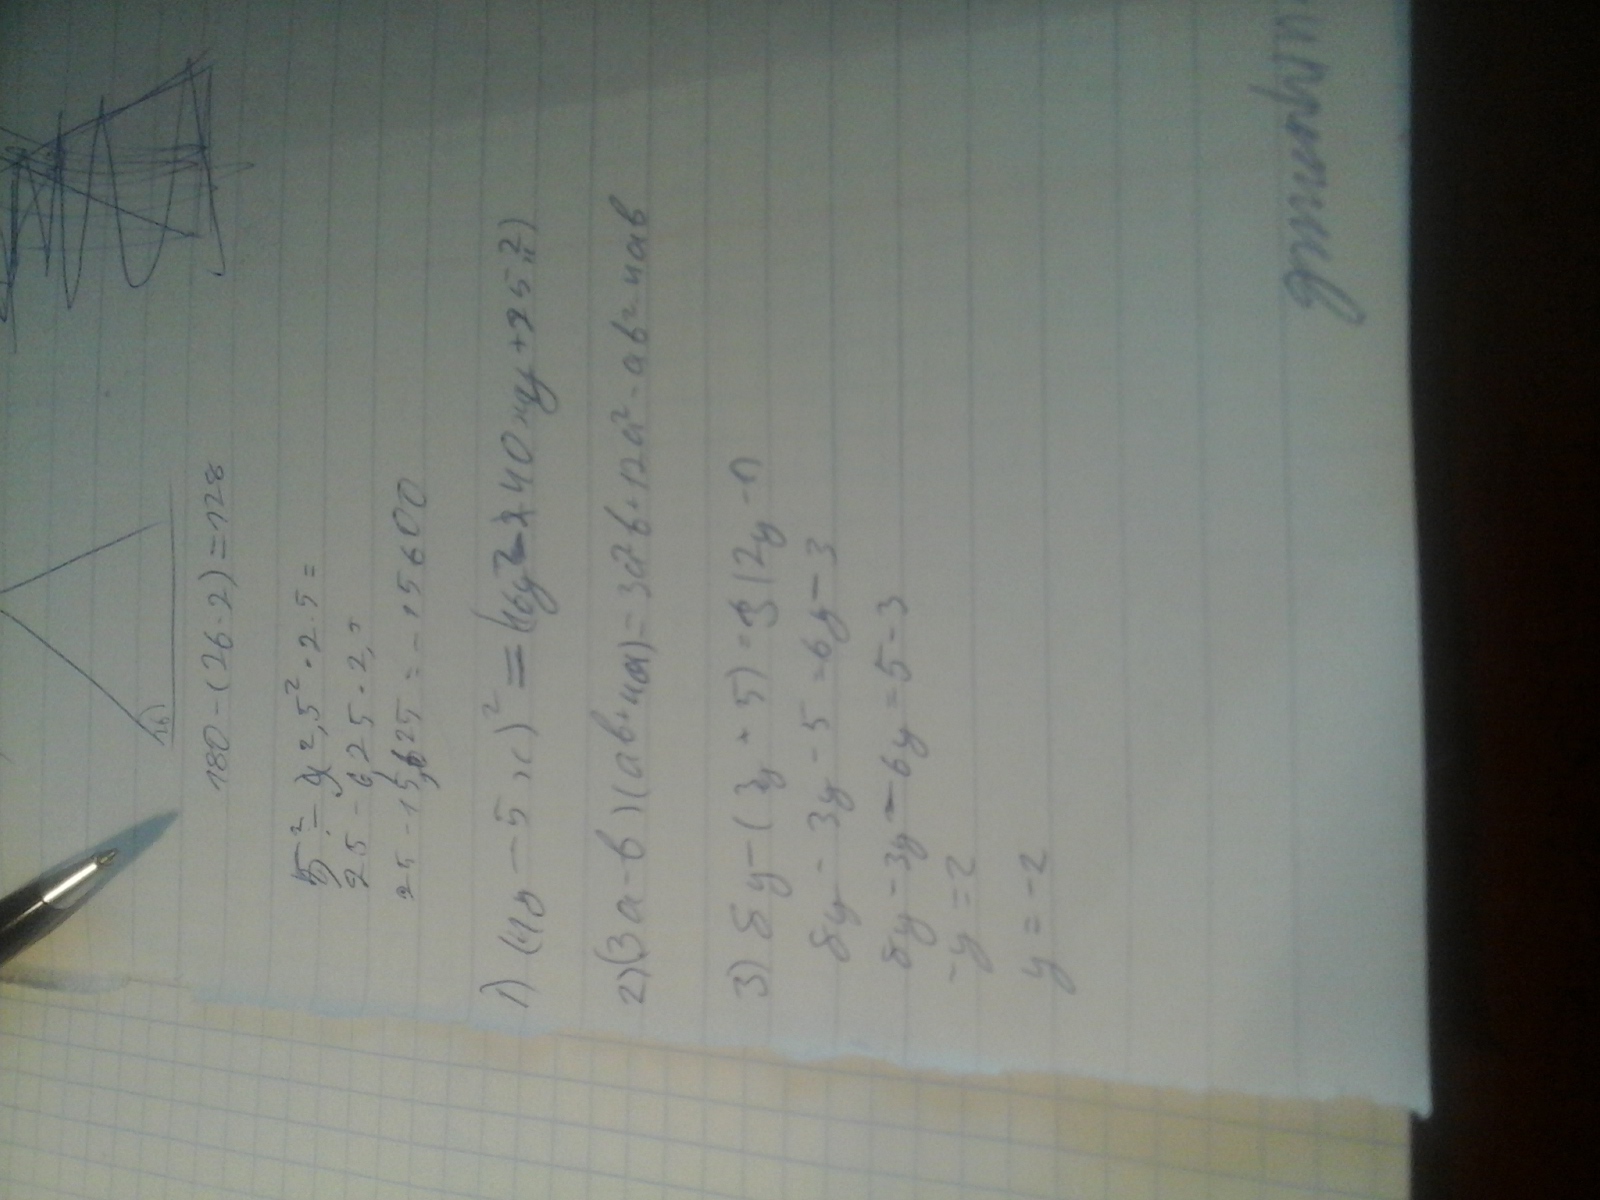 26
180-(26·2)=128
5²-2,5²·2·5=
25-6,25·2,5
25-15,625=-15600
1) (4y-5x)²=16y²-40xy+25x²
2) (3a-b)(ab+4a)=3a²b+12a²-ab²-4ab
3) 8y-(3y+5)=3(2y-1)
8y-3y-5=6y-3
8y-3y-6y=5-3
-y=2
y=-2